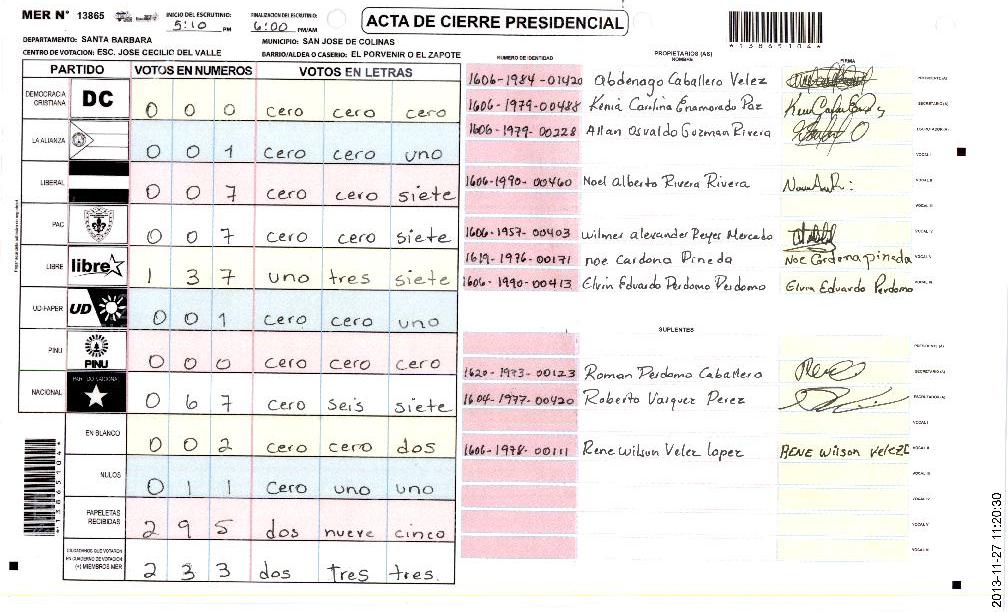 MER N° 13865
INICIO DEL ESCRUTINIO: 5:10 PM
FINALIZACION DEL ESCRUTINIO: 6:00 PM/AM
ACTA DE CIERRE PRESIDENCIAL
*13865104*
DEPARTAMENTO: SANTA BARBARA
MUNICIPIO: SAN JOSE DE COLINAS
CENTRO DE VOTACION: ESC. JOSE CECILIC DEL VALLE
BARRIO/ALDEA O CASERIO: EL PORVENIR O EL ZAPOTE
PARTIDO VOTOS EN NUMEROS VOTOS EN LETRAS
DEMOCRACIA CRISTIANA DC 0 0 0 cero cero cero
LA ALIANZA 0 0 1 cero cero uno
LIBERAL 0 0 7 cero cero siete
PAC 0 0 7 cero cero siete
LIBRE libre 1 3 7 uno tres siete
UD-FAPER UD 0 0 1 cero cero uno
PINU PINU 0 0 0 cero cero cero
NACIONAL PARTIDO NACIONAL 0 6 7 cero seis siete
EN BLANCO 0 0 2 cero cero dos
NULOS 0 1 1 cero uno uno
PAPELETAS RECIBIDAS 2 9 5 dos nueve cinco
CIUDADANOS QUE VOTARON EN CUADERNO DE VOTACION (+) MIEMBROS MER 2 3 3 dos tres tres.
*13865104*
PROPIETARIOS (AS)
NUMERO DE IDENTIDAD NOMBRE FIRMA
1606-1984-01420 Abdenago Caballero Velez PRESIDENTE (A)
1606-1979-00488 Kenia Carolina Enamorado Paz SECRETARIO (A)
1606-1979-00228 Allan Osvaldo Guzman Rivera ESCRUTADOR (A)
VOCAL I
1606-1990-00460 Noel Alberto Rivera Rivera VOCAL II
VOCAL III
1606-1957-00403 Wilmer alexander Reyes Mercado VOCAL IV
1619-1976-00171 noe Cardona Pineda Noe Cardona pineda VOCAL V
1606-1990-00413 Elvin Eduardo Perdomo Perdomo Elvin Eduardo Perdomo VOCAL VI
SUPLENTES
PRESIDENTE (A)
1620-1973-00123 Roman Perdomo Caballero SECRETARIO (A)
1604-1977-00420 Roberto Vasquez Perez ESCRUTADOR (A)
VOCAL I
1606-1978-00111 Rene Wilson Velez lopez RENE Wilson Velez L VOCAL II
VOCAL III
VOCAL IV
VOCAL V
VOCAL VI
2013-11-27 11:20:30